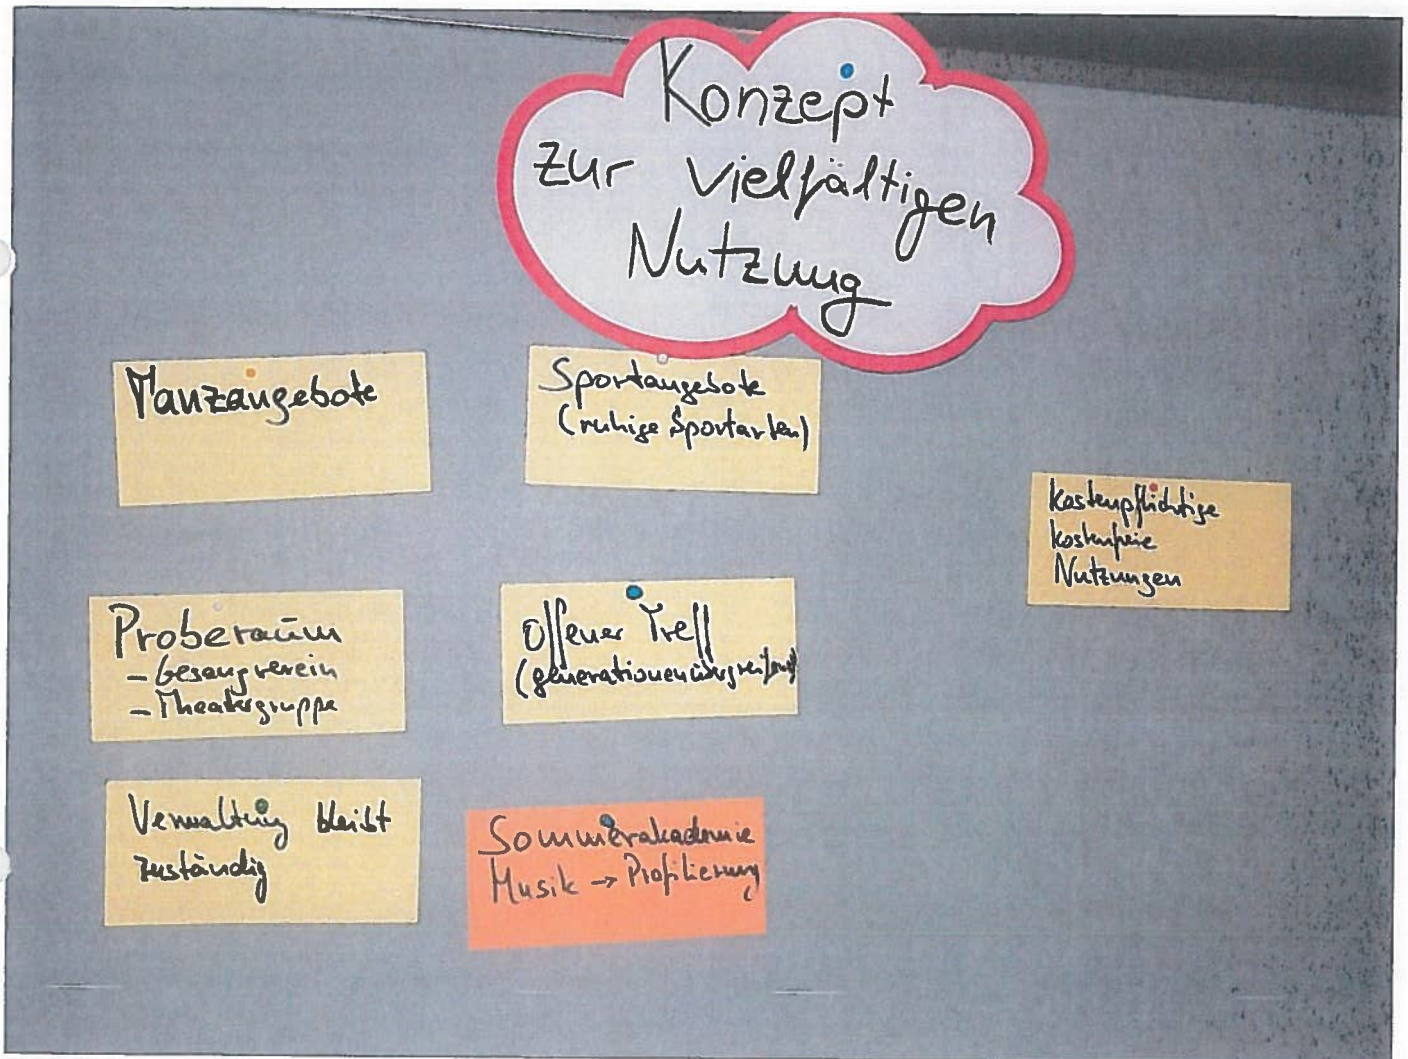 Konzept
zur vielfältigen
Nutzung
Tanzangebote
Sportangebote
(ruhige Sportarten)
kostenpflichtige
kostenfreie
Nutzungen
Proberaum
- Gesangverein
- Theatergruppe
Offener Treff
(generationenübergreifend)
Verwaltung bleibt
zuständig
Sommerakademie
Musik → Profilierung